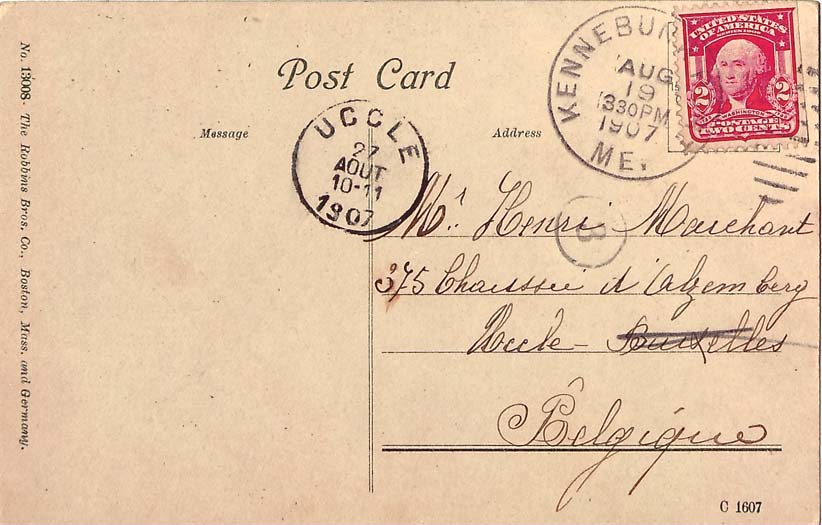 Post Card
Message
Address
No. 13008 - The Robbins Bros. Co., Boston, Mass. and Germany.
UCCLE
27
AOUT
10-11
1907
KENNEBUN
AUG
19
330PM
1907
ME.
UNITED STATES
OF AMERICA
2 2
WASHINGTON
POSTAGE
TWO CENTS
Mr. Henri Marchant
3
375 Chaussée d'Alzemberg
Uccle - Bruxelles
Belgique
C 1607